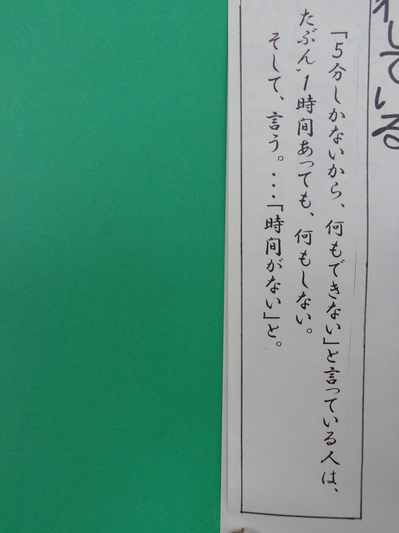 れしている
「5分しかないから、何もできない」と言っている人は、
たぶん、1時間あっても、何もしない。
そして、言う。・・・「時間がない」と。